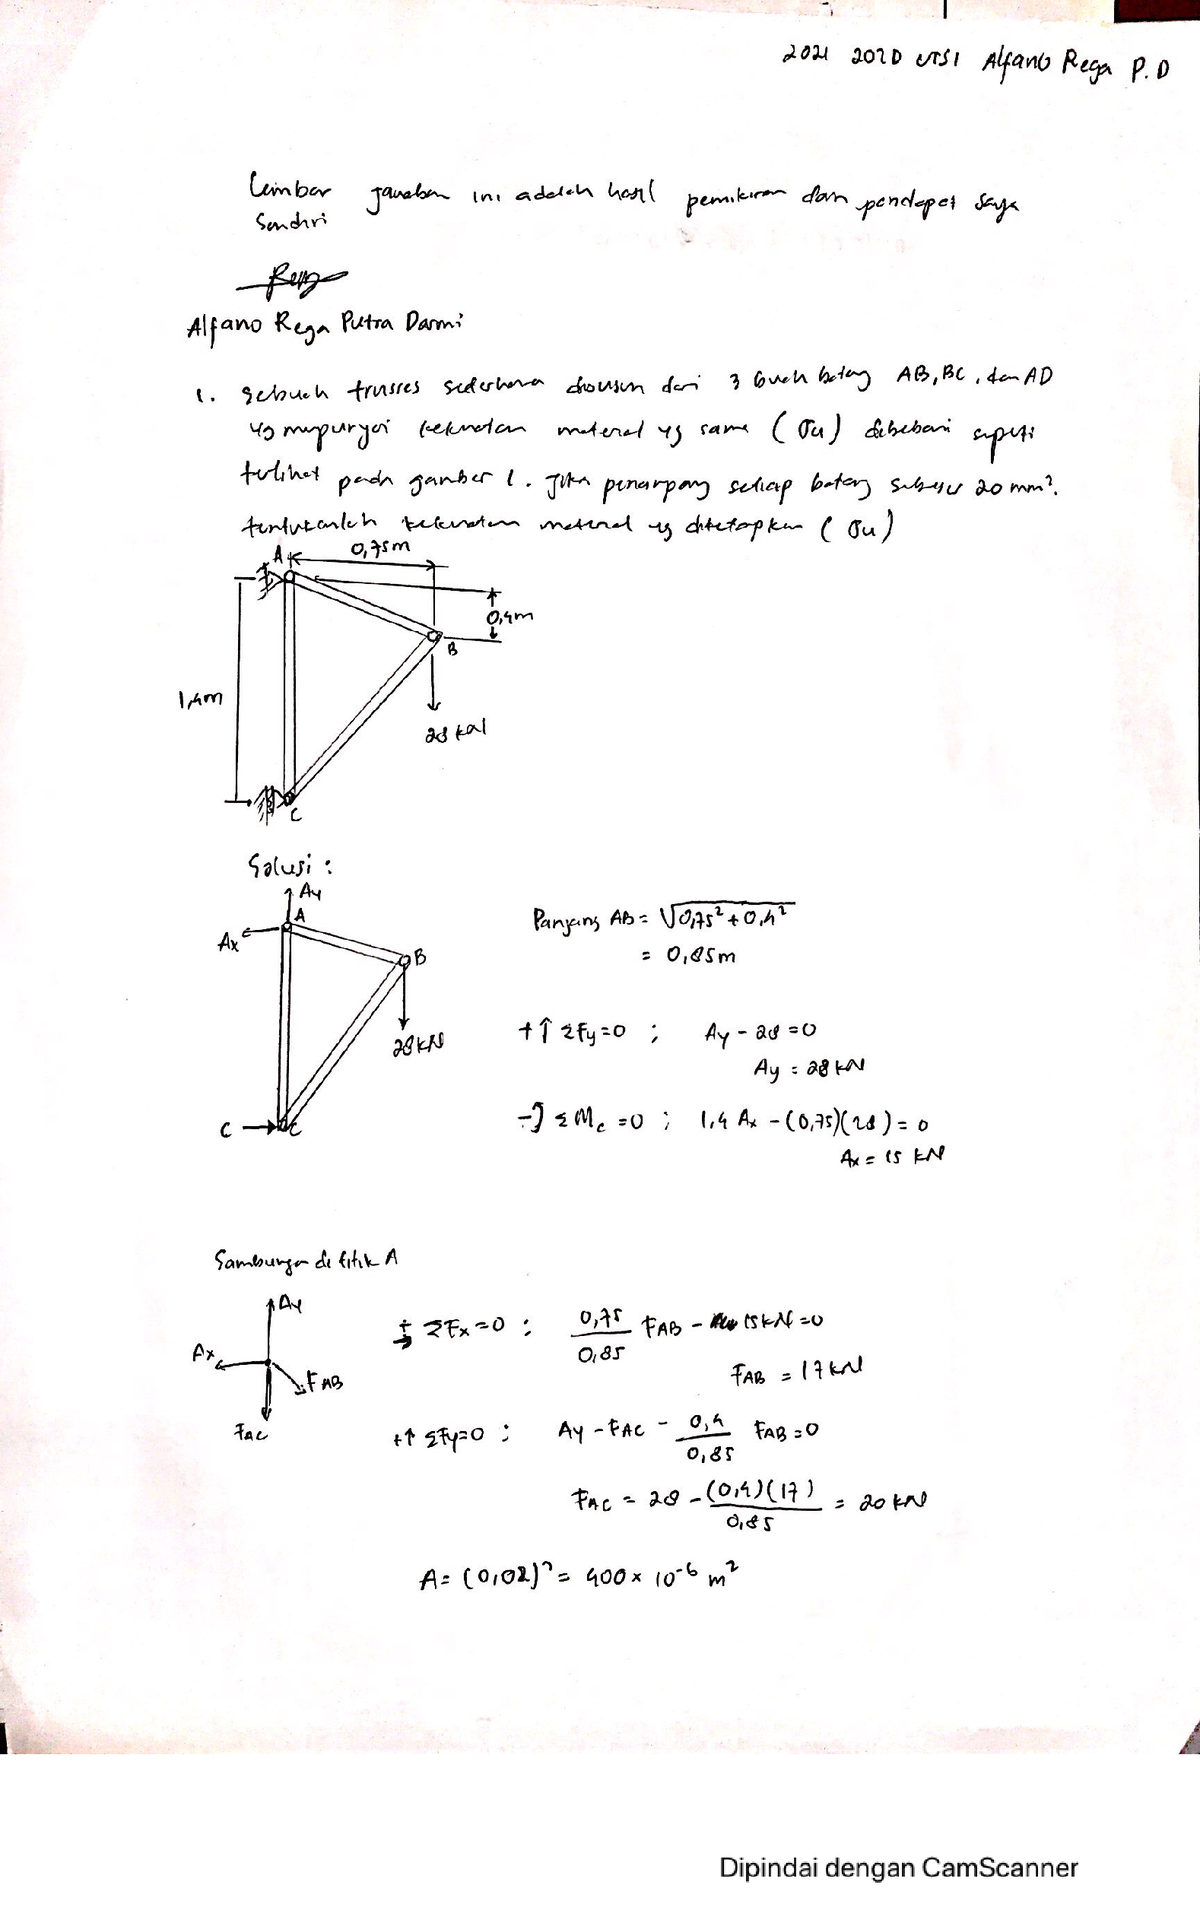 2021 2020 UTS1 Alfano Rega P.D
Lembar jawaban ini adalah hasil pemikiran dan pendapat saya
Sendiri
Alfano Rega Putra Darmi
1. Sebuah trusses sederhana disusun dari 3 buah batang AB, BC, dan AD
yg mempunyai kekuatan material yg sama (σu) dibebani seperti
terlihat pada gambar 1. Jika penampang setiap batang sebesar 20 mm².
tentukanlah kekuatan material yg ditetapkan (σu)
A
0,75m
0,4m
B
1,4m
28 kN
C
Solusi :
Ay
A
Ax
B
28 kN
C
C
Panjang AB = √0,75² + 0,4²
= 0,85m
+↑ ΣFy=0 ; Ay - 28 = 0
Ay = 28 kN
ΣMc = 0 ; 1,4 Ax - (0,75)(28) = 0
Ax = 15 kN
Sambungan di titik A
Ay
Ax
FAB
FAC
ΣFx = 0 ; 0,75/0,85 FAB - 15kN = 0
FAB = 17 kN
+↑ ΣFy=0 ; Ay - FAC - 0,4/0,85 FAB = 0
FAC = 28 - (0,4)(17)/0,85 = 20 kN
A = (0,02)² = 400 × 10⁻⁶ m²
Dipindai dengan CamScanner